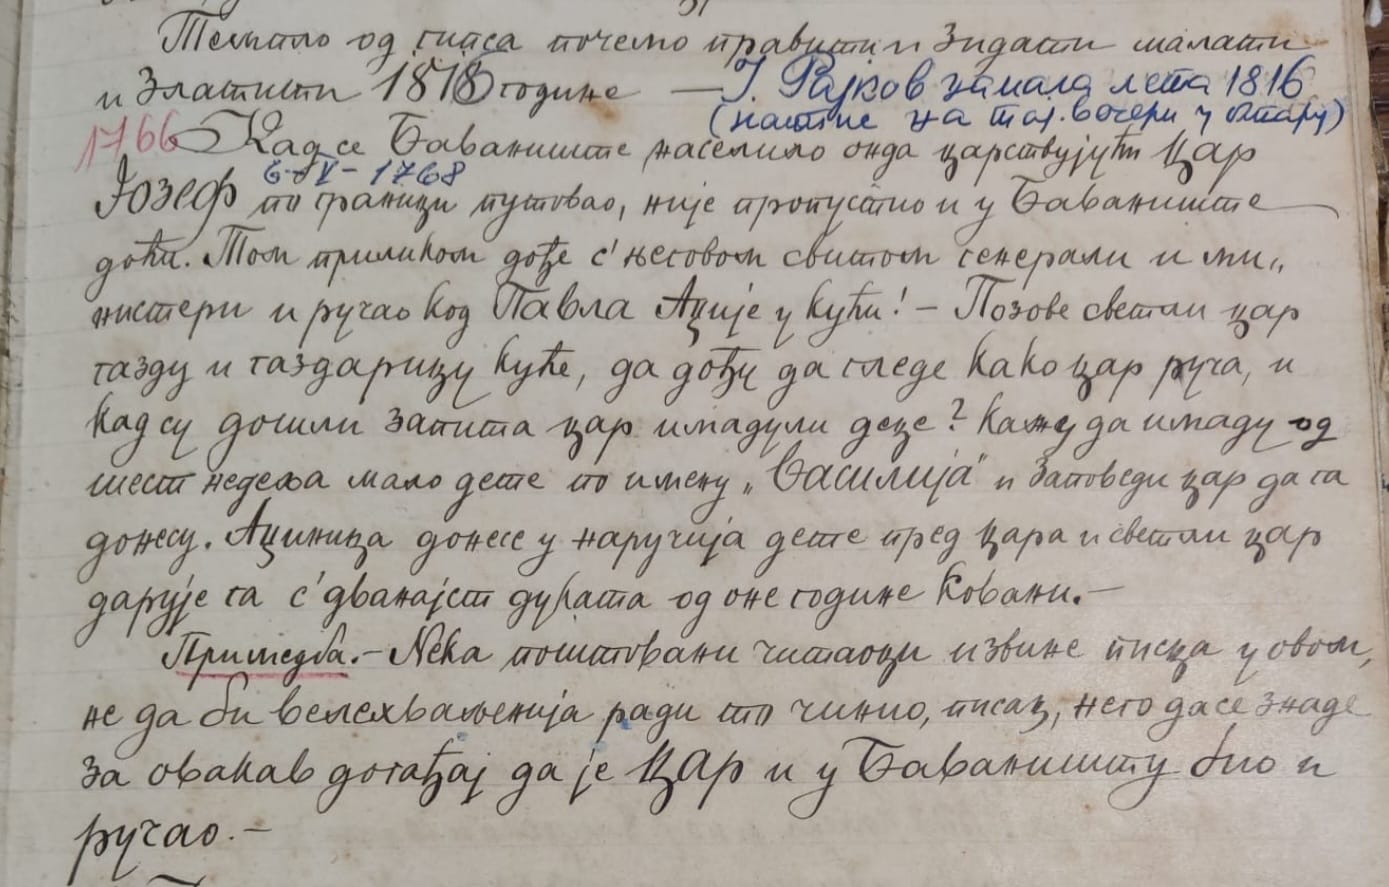 Темпло од гипса почемо правити и зидати малати
и златити 1818 године — Ј. Рајков замала лета 1816
(натпис на тај. вечери у олтару)
1766 Кад се Баваниште населило онда царствујући Цар
Јозеф по граници путовао, није пропустио и у Баваниште
6-V-1768
доћи. Том приликом дође с' његовом свитом генерали и ми„
нистери и ручао код Павла Ације у кући! – Позове светли цар
газду и газдарицу куће, да дођу да гледе како цар руча, и
кад су дошли запита цар имадули деце? Кажу да имаду од
шест недеља мало дете по имену „Василија" и заповеди цар да га
донесу. Ациница донесе у наручија дете пред цара и светли цар
дарује га с' дванајст дуката од оне године ковани.–
Примедба.– Нека поштовани читаоци извине писца у овом,
не да би велехваљенија ради то чинио, писац, него да се знаде
за овакав догађај да је Цар и у Баваништу био и
ручао.–